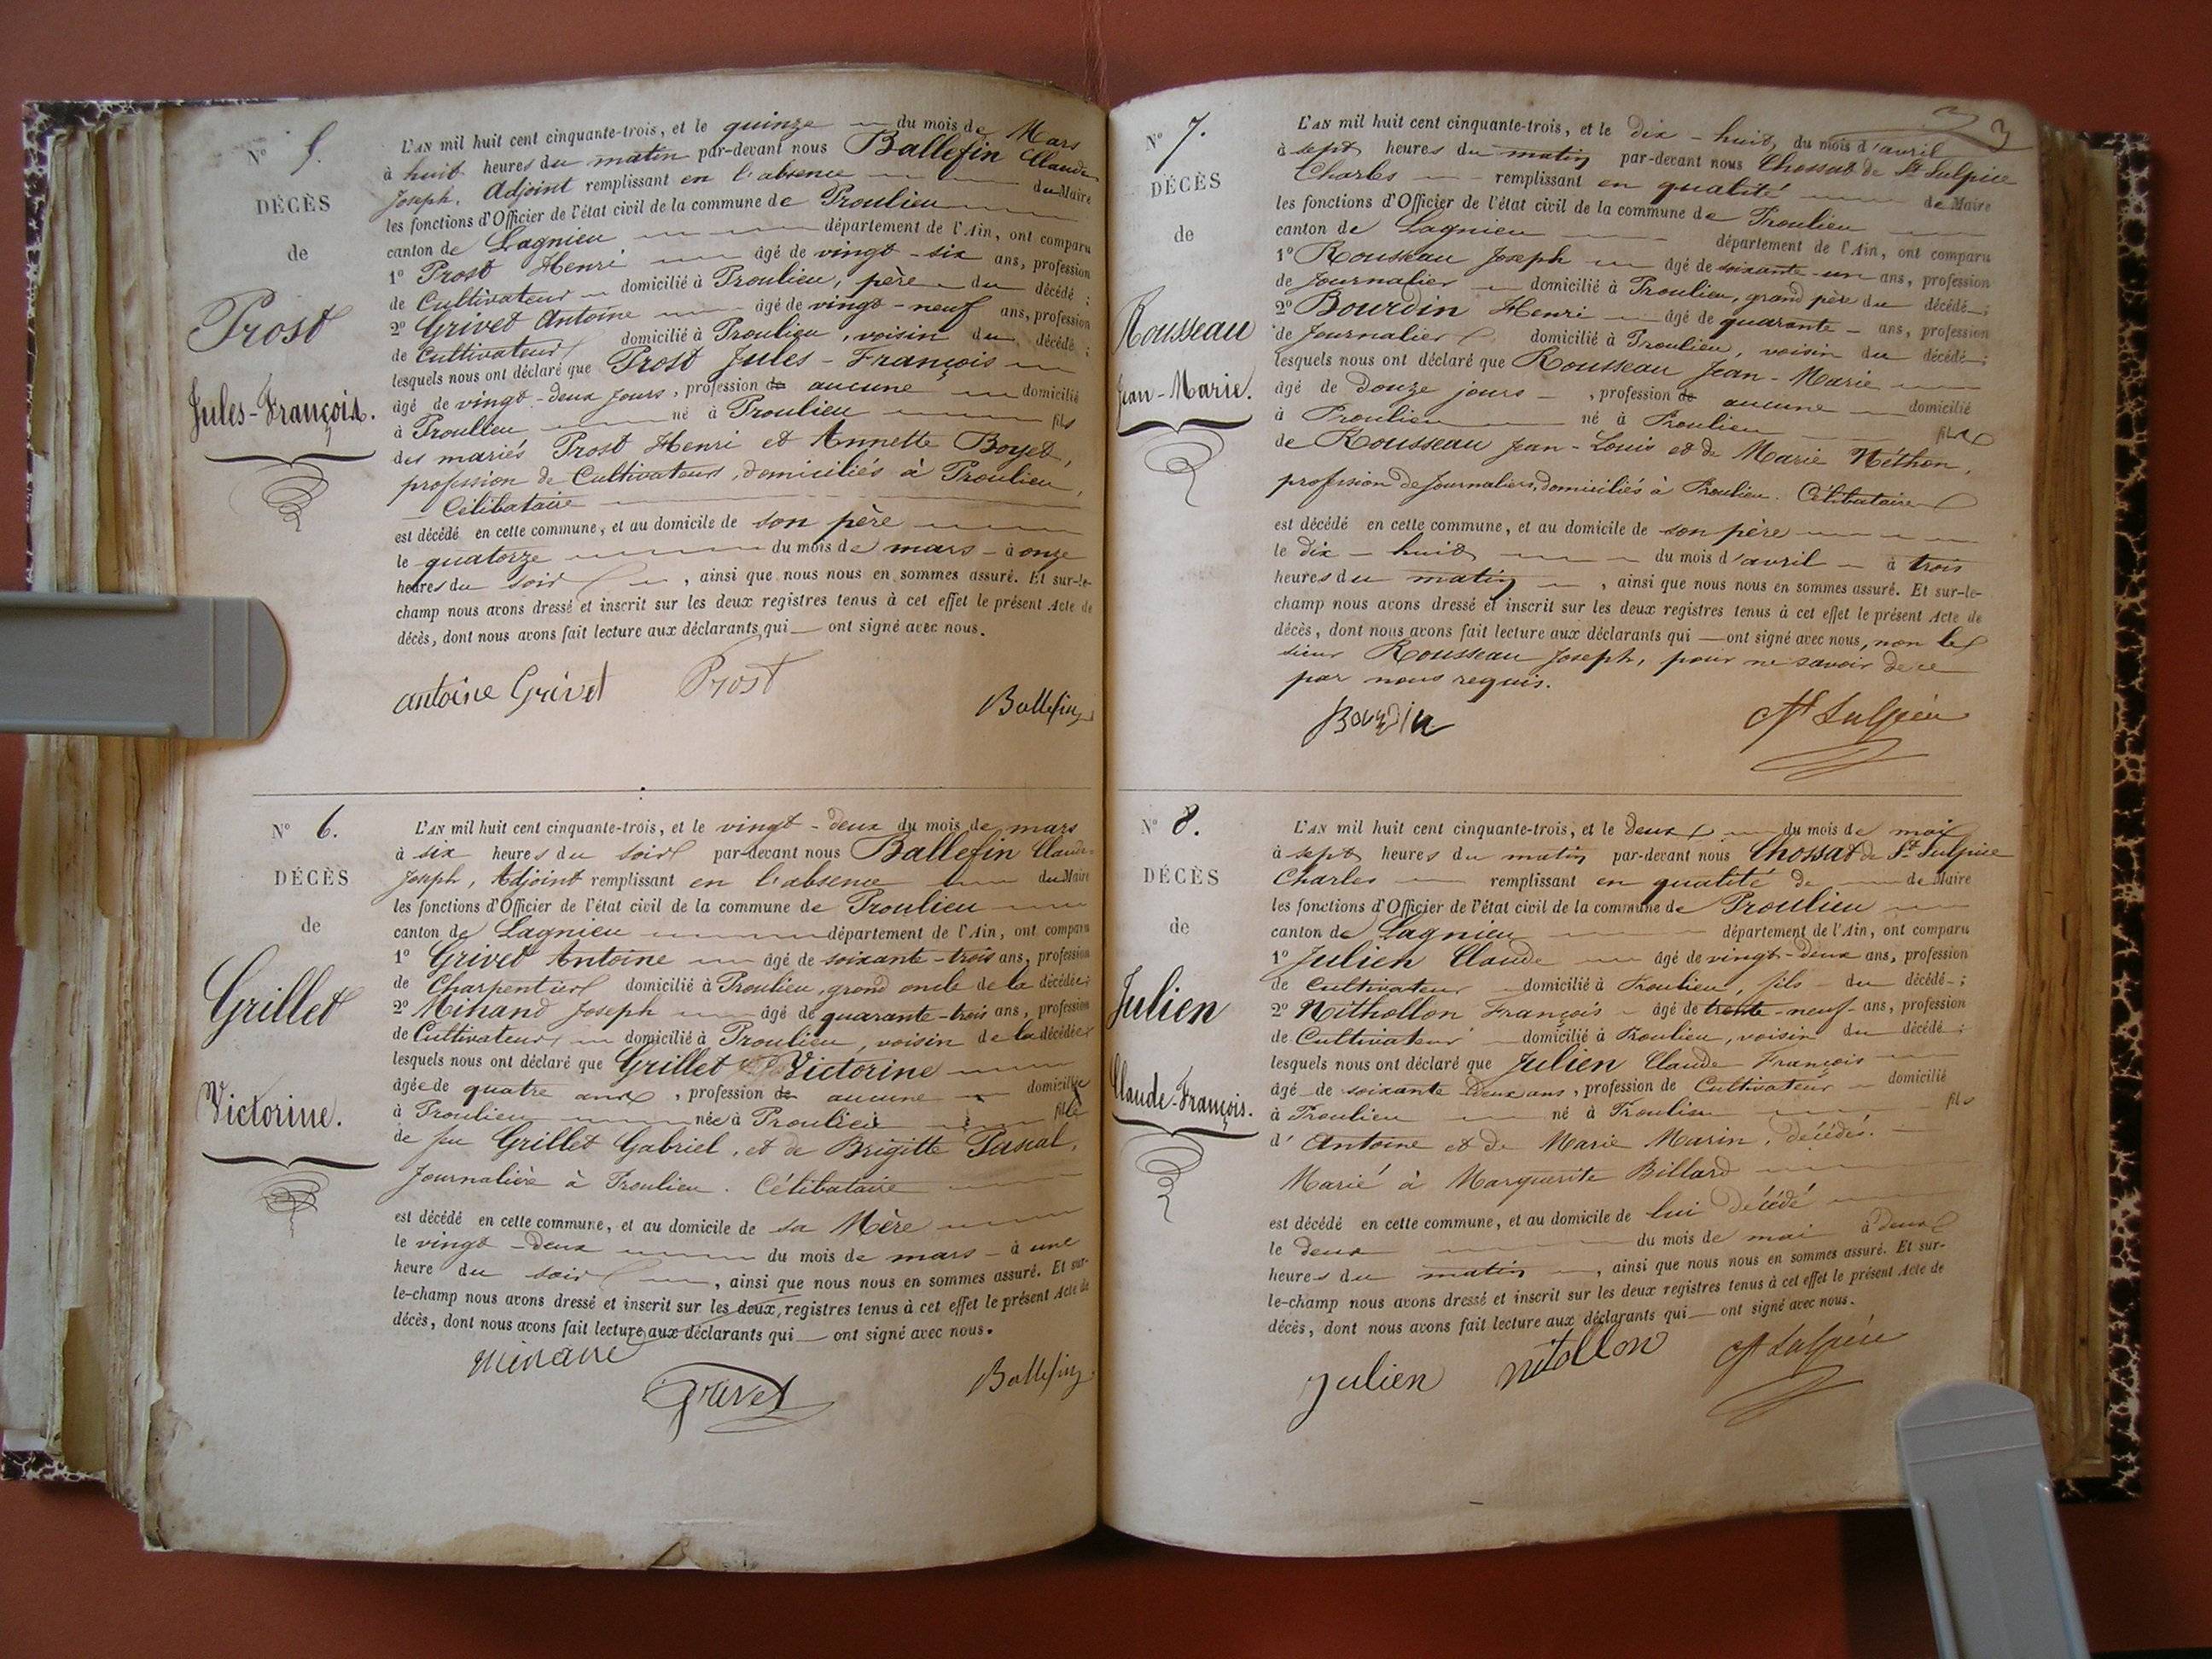 N° 5.
DÉCÈS
de
Prost
Jules-François.
L'AN mil huit cent cinquante-trois, et le quinze du mois de Mars
à huit heures du matin par-devant nous Ballefin Claude
Joseph, Adjoint remplissant en l'absence du Maire
les fonctions d'Officier de l'état civil de la commune de Proulieu
canton de Lagnieu département de l'Ain, ont comparu
1° Prost Henri âgé de vingt-six ans, profession
de Cultivateur domicilié à Proulieu, père du décédé;
2° Grivet Antoine âgé de vingt-neuf ans, profession
de Cultivateur domicilié à Proulieu, voisin du décédé;
lesquels nous ont déclaré que Prost Jules-François
âgé de vingt-deux jours, profession de aucune domicilié
à Proulieu né à Proulieu fils
des mariés Prost Henri et Annette Boyet,
profession de Cultivateurs, domiciliés à Proulieu,
Célibataire
est décédé en cette commune, et au domicile de son père
le quatorze du mois de mars à onze
heures du soir, ainsi que nous nous en sommes assuré. Et sur-le-
champ nous avons dressé et inscrit sur les deux registres tenus à cet effet le présent Acte de
décès, dont nous avons fait lecture aux déclarants qui ont signé avec nous.
antoine Grivet Prost Ballefin
N° 6.
DÉCÈS
de
Grillet
Victorine.
L'AN mil huit cent cinquante-trois, et le vingt-deux du mois de mars
à six heures du soir par-devant nous Ballefin Claude-
Joseph, Adjoint remplissant en l'absence du Maire
les fonctions d'Officier de l'état civil de la commune de Proulieu
canton de Lagnieu département de l'Ain, ont comparu
1° Grivet Antoine âgé de soixante-trois ans, profession
de Charpentier domicilié à Proulieu, grand oncle de la décédée;
2° Minand Joseph âgé de quarante-trois ans, profession
de Cultivateur domicilié à Proulieu, voisin de la décédée
lesquels nous ont déclaré que Grillet Victorine
âgée de quatre ans, profession de aucune domiciliée
à Proulieu née à Proulieu fille
de feu Grillet Gabriel, et de Brigitte Pascal,
Journalière à Proulieu. Célibataire
est décédé en cette commune, et au domicile de sa Mère
le vingt-deux du mois de mars à une
heure du soir, ainsi que nous nous en sommes assuré. Et sur-
le-champ nous avons dressé et inscrit sur les deux registres tenus à cet effet le présent Acte de
décès, dont nous avons fait lecture aux déclarants qui ont signé avec nous.
Minand Grivet Ballefin
3
N° 7.
DÉCÈS
de
Rousseau
Jean-Marie.
L'AN mil huit cent cinquante-trois, et le dix-huit du mois d'avril
à sept heures du matin par-devant nous Chossat de St Sulpice
Charles remplissant en qualité de Maire
les fonctions d'Officier de l'état civil de la commune de Proulieu
canton de Lagnieu département de l'Ain, ont comparu
1° Rousseau Joseph âgé de soixante-un ans, profession
de Journalier domicilié à Proulieu, grand père du décédé;
2° Bourdin Henri âgé de quarante ans, profession
de Journalier domicilié à Proulieu, voisin du décédé;
lesquels nous ont déclaré que Rousseau Jean-Marie
âgé de douze jours, profession de aucune domicilié
à Proulieu né à Proulieu fils
de Rousseau Jean-Louis et de Marie Néthon,
profession de Journaliers, domiciliés à Proulieu. Célibataire
est décédé en cette commune, et au domicile de son père
le dix-huit du mois d'avril à trois
heures du matin, ainsi que nous nous en sommes assuré. Et sur-le-
champ nous avons dressé et inscrit sur les deux registres tenus à cet effet le présent Acte de
décès, dont nous avons fait lecture aux déclarants qui ont signé avec nous, non le
sieur Rousseau Joseph, pour ne savoir de ce
par nous requis.
Bourdin St Sulpice
N° 8.
DÉCÈS
de
Julien
Claude-François.
L'AN mil huit cent cinquante-trois, et le deux du mois de mai
à sept heures du matin par-devant nous Chossat de St Sulpice
Charles remplissant en qualité de de Maire
les fonctions d'Officier de l'état civil de la commune de Proulieu
canton de Lagnieu département de l'Ain, ont comparu
1° Julien Claude âgé de vingt-deux ans, profession
de Cultivateur domicilié à Proulieu, fils du décédé;
2° Nithollon François âgé de trente-neuf ans, profession
de Cultivateur domicilié à Proulieu, voisin du décédé;
lesquels nous ont déclaré que Julien Claude François
âgé de soixante deux ans, profession de Cultivateur domicilié
à Proulieu né à Proulieu fils
d'Antoine et de Marie Marin, décédés.
Marié à Marguerite Billard
est décédé en cette commune, et au domicile de lui décédé
le deux du mois de mai à deux
heures du matin, ainsi que nous nous en sommes assuré. Et sur-
le-champ nous avons dressé et inscrit sur les deux registres tenus à cet effet le présent Acte de
décès, dont nous avons fait lecture aux déclarants qui ont signé avec nous.
Julien nitollon St Sulpice